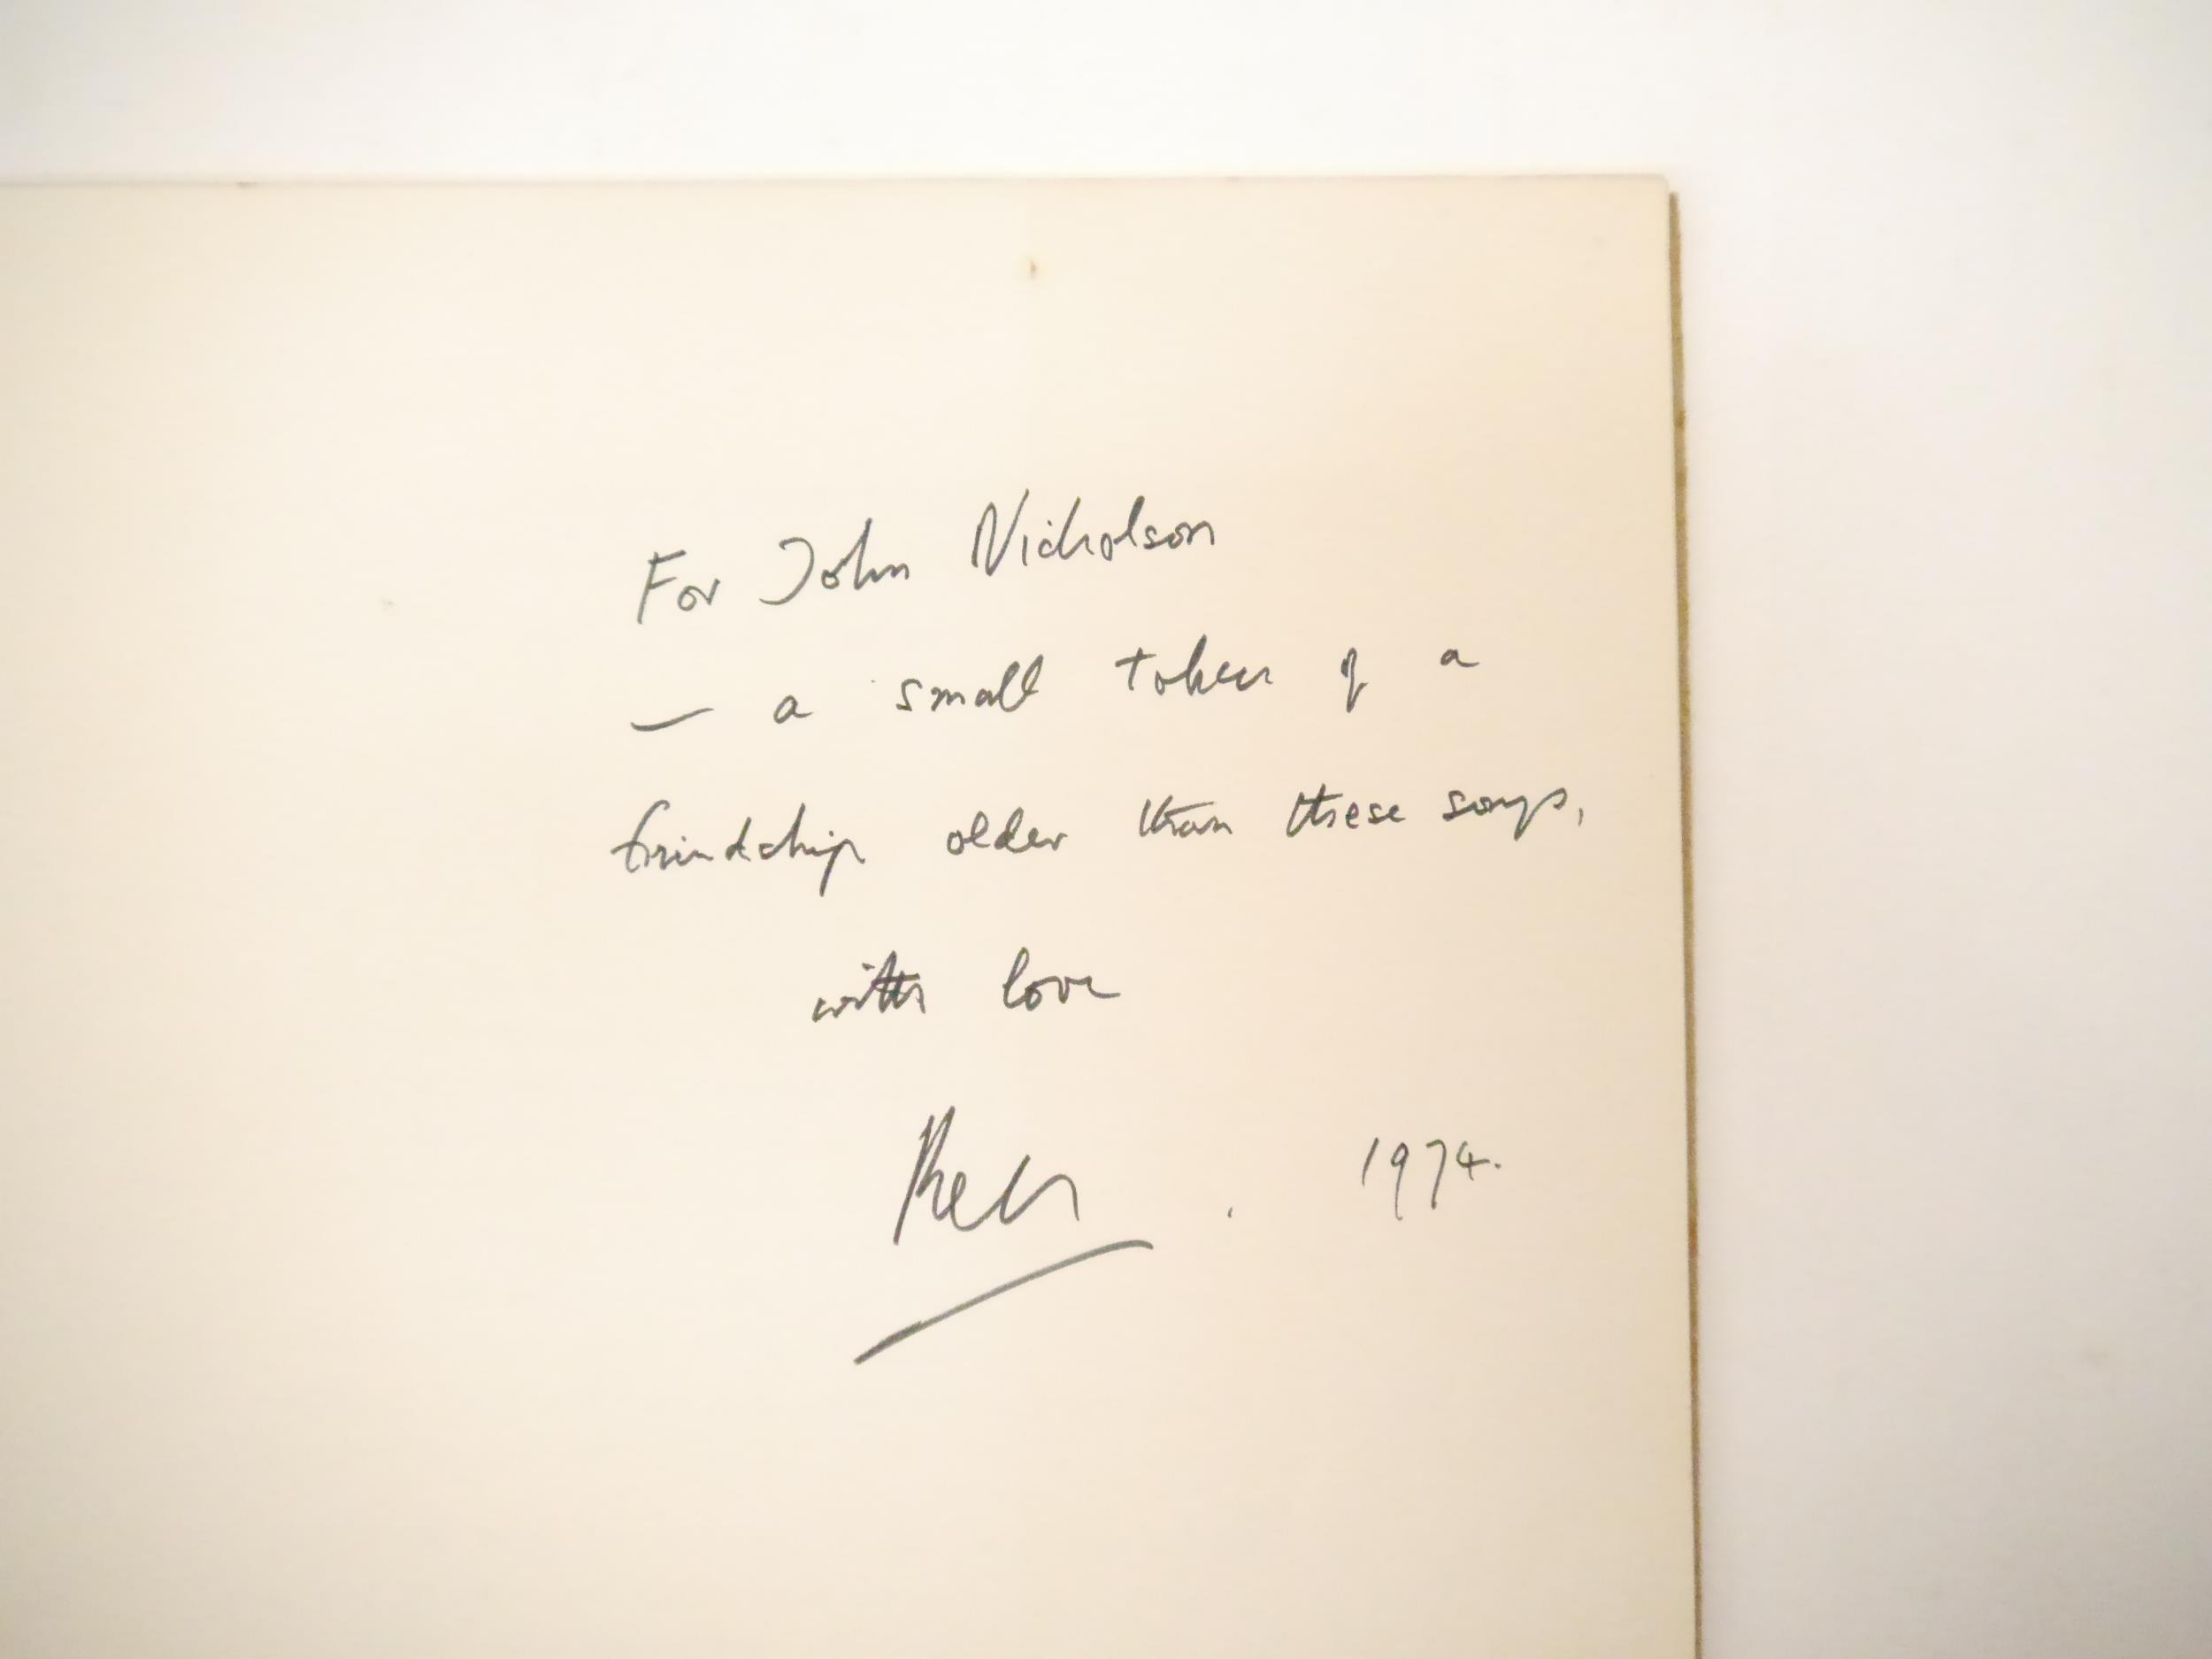 For John Nicholson
— a small token of a
friendship older than these songs,
with love
1974.